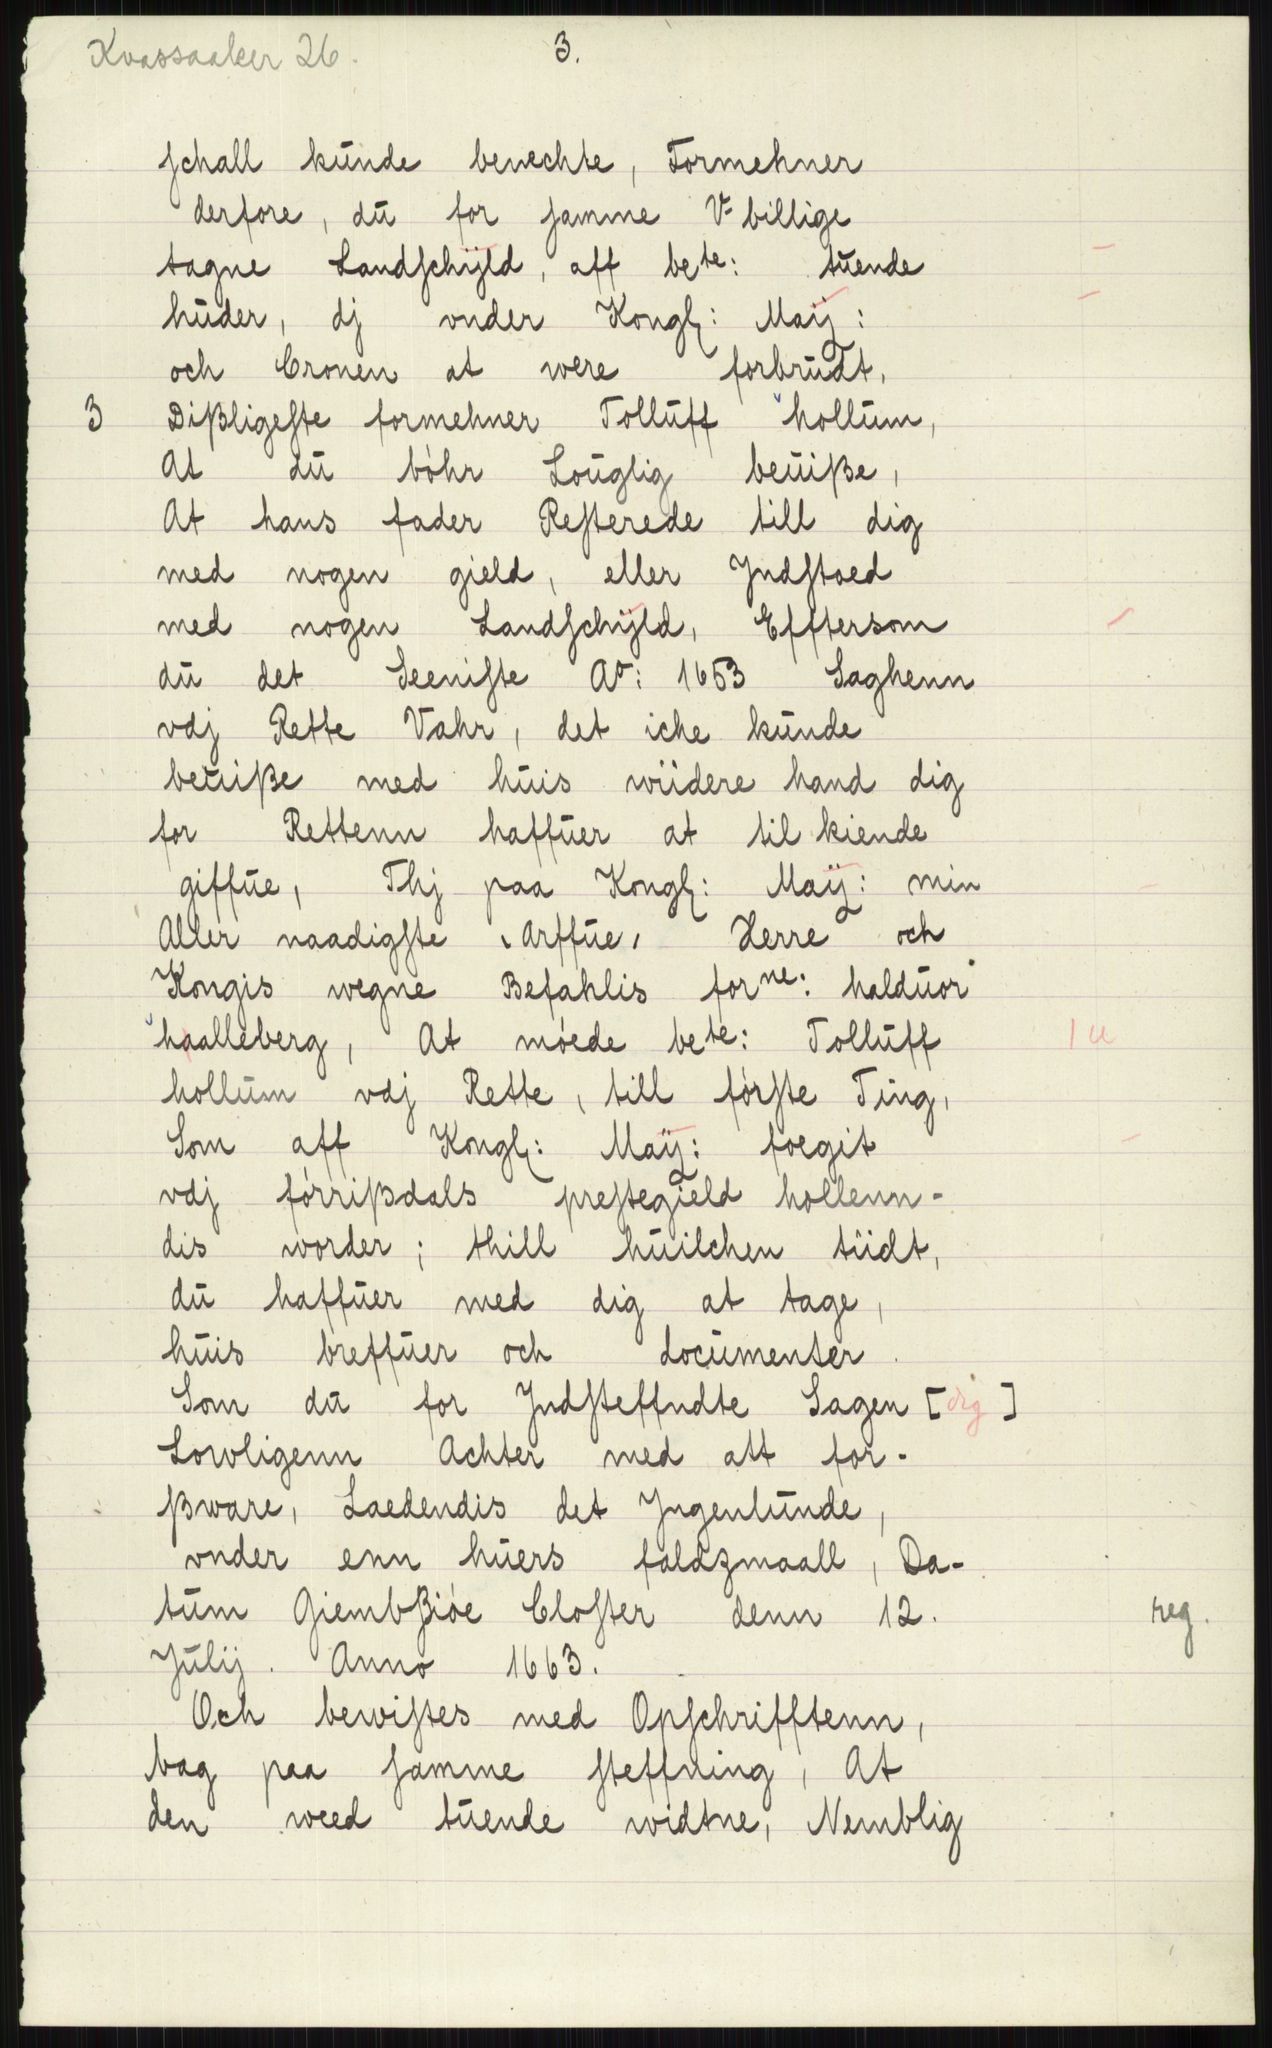 Kvassaaker 26.
3.
schall kunde benechte, Formehner
derfore, du for samme V= billige
tagne Landschÿld, aff bete: tuende
huder, dj vnder Kongl: Maÿ:
och Cronen at were forbrudt,
3 Dißligeste formehner Tolluff hollum,
At du bóhr Louglig beuiße,
At hans fader Resterede till dig
med nogen gield, eller Jndstaed
med nogen Landschÿld, Efftersom
du det Seeniste Ao: 1653 Saghenn
vdj Rette Vahr, det iche kunde
beuiße med huis wiidere hand dig
for Rettenn haffuer at til kiende
giffue, Thj paa Kongl: Maÿ: min
Aller naadigste Arffue, Herre och
Kongis wegne Befahlis forne: halduor
haalleberg, At móede bete: Tolluff
1 u
hollum vdj Rette, till fórste Ting,
Som aff Kongl: Maÿ: foegit
vdj fórrißdals prestegield hollenn-
dis worder; thill huilchen tiidt,
du haffuer med dig at tage,
huis breffuer och documenter
Som du for Jndsteffndte Sagen [dig]
Lowligenn Achter med att for-
ßware, Laedendis det Jngenlunde,
vnder enn huers faldzmaall, Da-
tum Giembßióe Closter denn 12.
reg.
Julij. Anno 1663.
Och bewistes med Opschrifftenn,
bag paa samme steffning, At
den weed tuende widtne, Nemblig